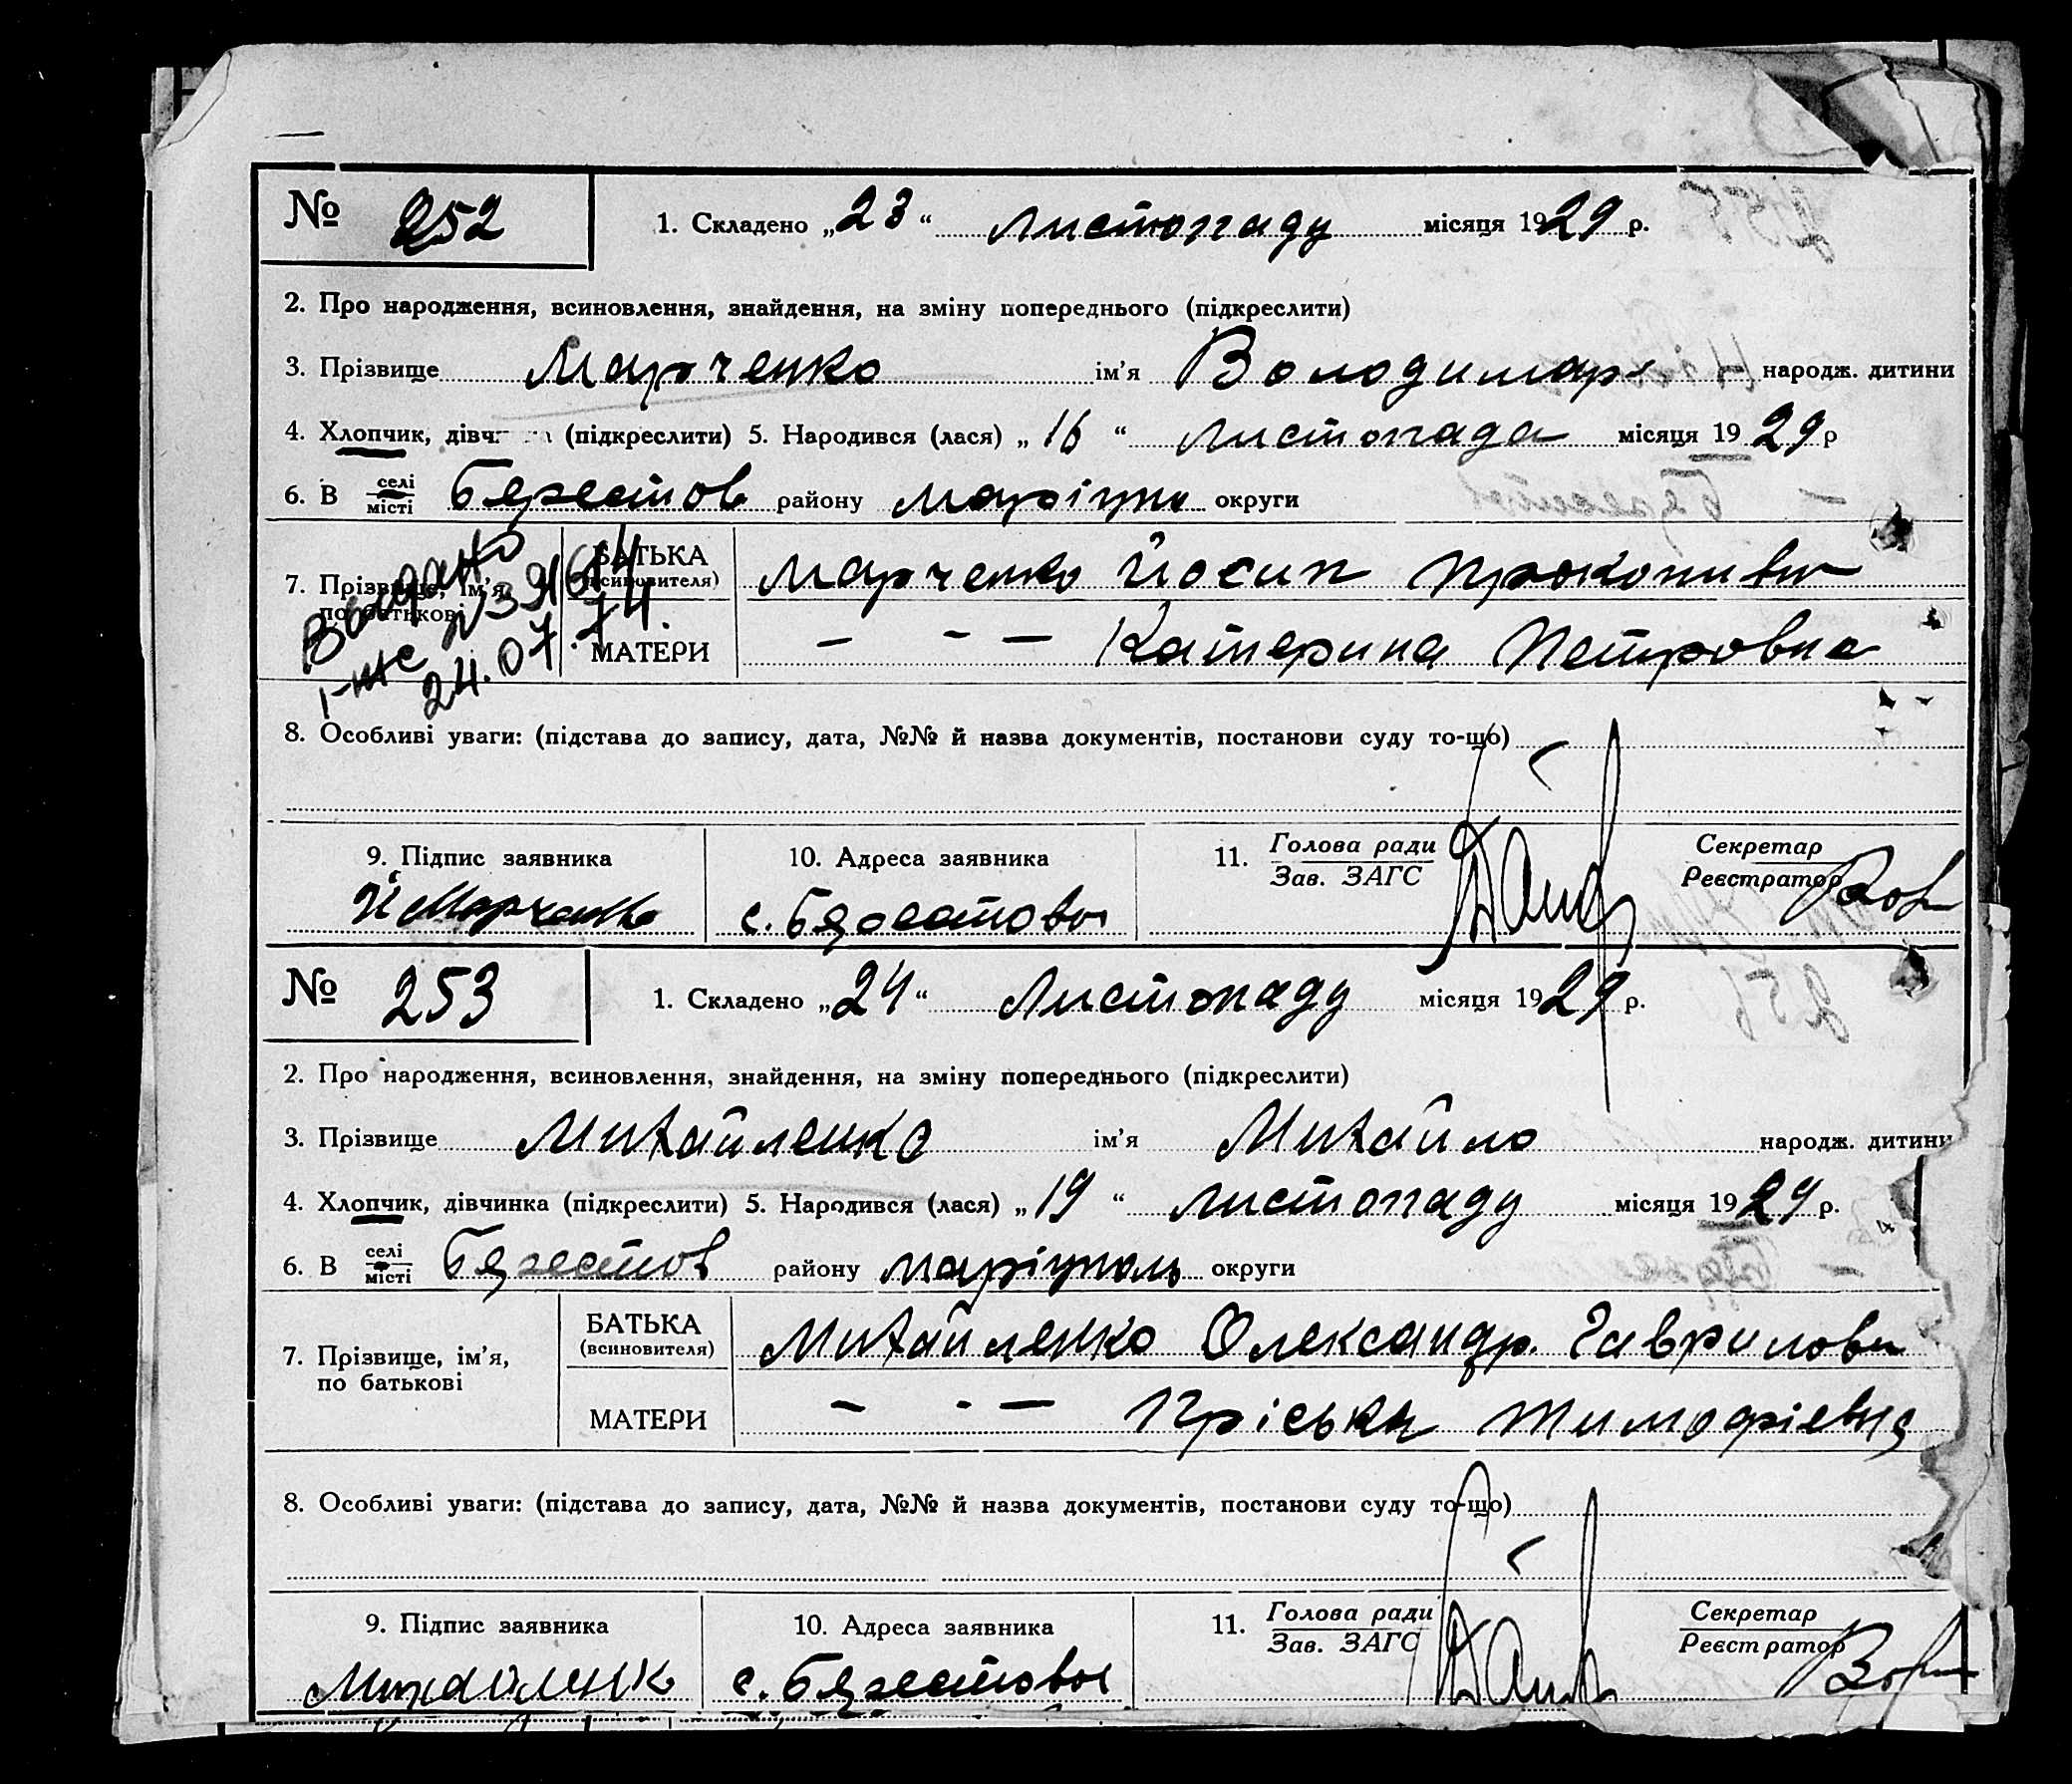 № 252 1. Складено „23“ листопаду місяця 1929 р.
2. Про народження, всиновлення, знайдення, на зміну попереднього (підкреслити)
3. Прізвище Марченко ім’я Володимир народж. дитини
4. Хлопчик, (підкреслити) 5. Народився (лася) „16“ листопада місяця 1929 р
6. В селі місті Берестов району маріуп округи
7. Прізвище, ім’я, по батькові
БАТЬКА (всиновителя) Марченко Йосип Прокопивич
Видано
24.07.74.
МАТЕРИ — - — Катерина Петровна
8. Особливі уваги: (підстава до запису, дата, №№ й назва документів, постанови суду то-що)
9. Підпис заявника 10. Адреса заявника 11. Голова ради Зав. ЗАГС Секретар Реєстратор
Й Марченко с. Берестовы
№ 253 1. Складено „24“ листопаду місяця 1929 р.
2. Про народження, всиновлення, знайдення, на зміну попереднього (підкреслити)
3. Прізвище Михайленко ім’я Михайло народж. дитини
4. Хлопчик, дівчинка (підкреслити) 5. Народився (лася) „19“ листопаду місяця 1929 р.
6. В селі місті Берестов району маріуполь округи
7. Прізвище, ім’я, по батькові
БАТЬКА (всиновителя) Михайленко Олександр. Гаврилови
МАТЕРИ — - — Пріська тимофієвна
8. Особливі уваги: (підстава до запису, дата, №№ й назва документів, постанови суду то-що)
9. Підпис заявника 10. Адреса заявника 11. Голова ради Зав. ЗАГС Секретар Реєстратор
с. Берестовы